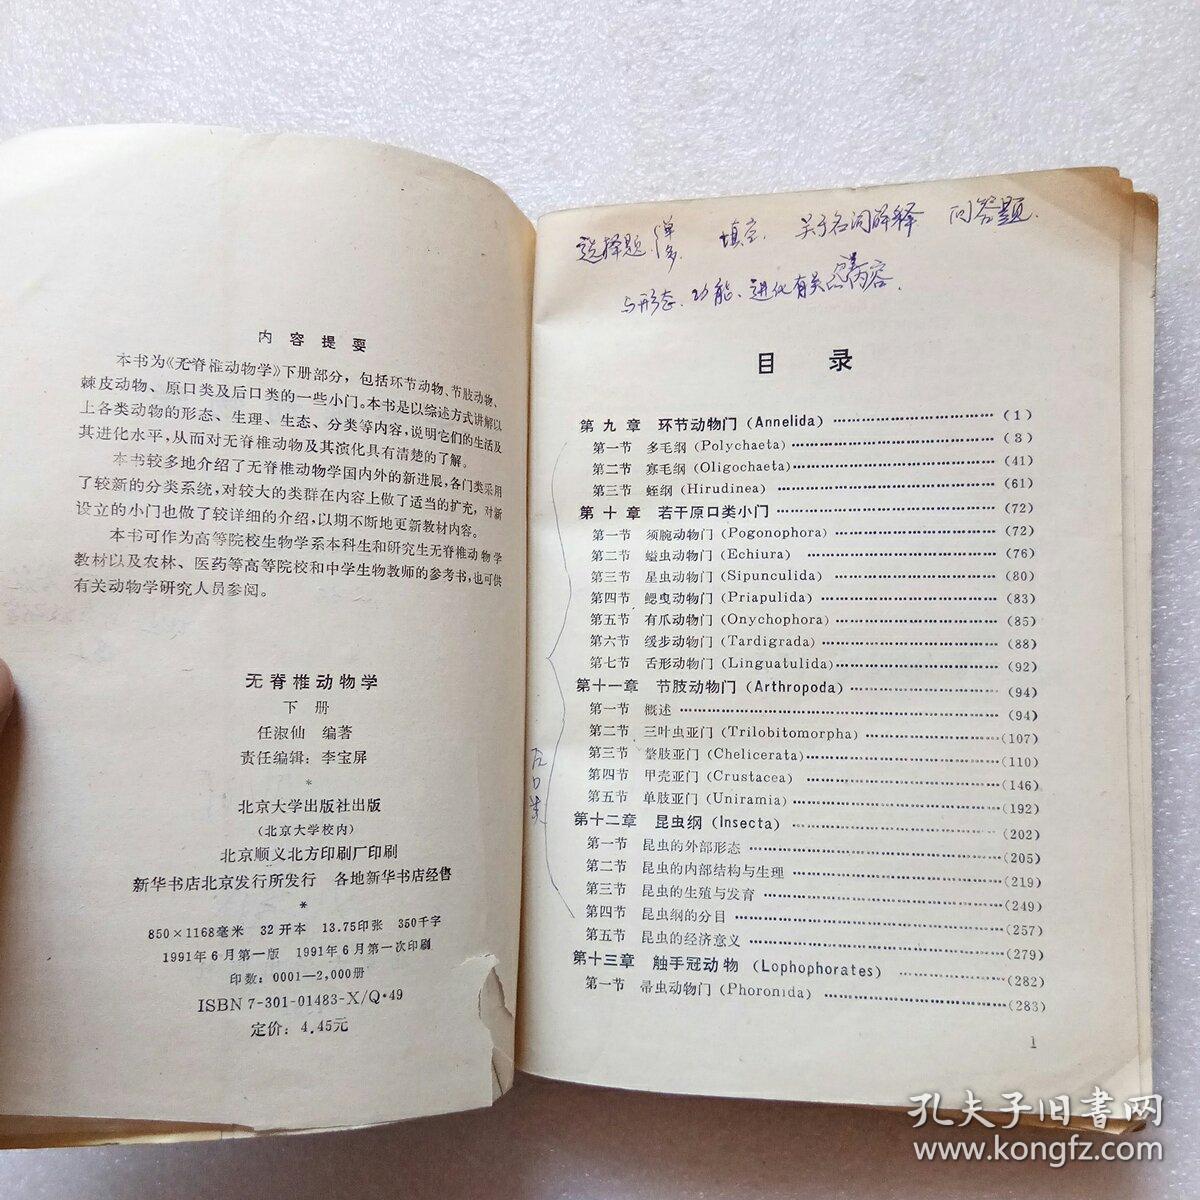 内容提要
本书为《无脊椎动物学》下册部分，包括环节动物、节肢动物、
棘皮动物、原口类及后口类的一些小门。本书是以综述方式讲解以
上各类动物的形态、生理、生态、分类等内容，说明它们的生活及
其进化水平，从而对无脊椎动物及其演化具有清楚的了解。
本书较多地介绍了无脊椎动物学国内外的新进展，各门类采用
了较新的分类系统，对较大的类群在内容上做了适当的扩充，对新
设立的小门也做了较详细的介绍，以期不断地更新教材内容。
本书可作为高等院校生物学系本科生和研究生无脊椎动物学
教材以及农林、医药等高等院校和中学生物教师的参考书，也可供
有关动物学研究人员参阅。
无脊椎动物学
下册
任淑仙 编著
责任编辑：李宝屏
*
北京大学出版社出版
（北京大学校内）
北京顺义北方印刷厂印刷
新华书店北京发行所发行 各地新华书店经售
*
850×1168毫米 32开本 13.75印张 350千字
1991年6月第一版 1991年6月第一次印刷
印数：0001—2,000册
ISBN 7-301-01483-X/Q·49
定价：4.45元
选择题 单 多 填空 关于名词解释 问答题.
与形态、功能、进化有关的内容.
目录
第九章 环节动物门（Annelida）……（1）
第一节 多毛纲（Polychaeta）……（3）
第二节 寡毛纲（Oligochaeta）……（41）
第三节 蛭纲（Hirudinea）……（61）
第十章 若干原口类小门……（72）
第一节 须腕动物门（Pogonophora）……（72）
第二节 螠虫动物门（Echiura）……（76）
第三节 星虫动物门（Sipunculida）……（80）
第四节 鳃曳动物门（Priapulida）……（83）
第五节 有爪动物门（Onychophora）……（85）
第六节 缓步动物门（Tardigrada）……（88）
第七节 舌形动物门（Linguatulida）……（92）
第十一章 节肢动物门（Arthropoda）……（94）
第一节 概述……（94）
第二节 三叶虫亚门（Trilobitomorpha）……（107）
第三节 螯肢亚门（Chelicerata）……（110）
第四节 甲壳亚门（Crustacea）……（146）
第五节 单肢亚门（Uniramia）……（192）
第十二章 昆虫纲（Insecta）……（202）
第一节 昆虫的外部形态……（205）
第二节 昆虫的内部结构与生理……（219）
第三节 昆虫的生殖与发育……（249）
第四节 昆虫纲的分目……（257）
第五节 昆虫的经济意义……（279）
第十三章 触手冠动物（Lophophorates）……（282）
第一节 帚虫动物门（Phoronida）……（283）
1
孔夫子旧书网
www.kongfz.com